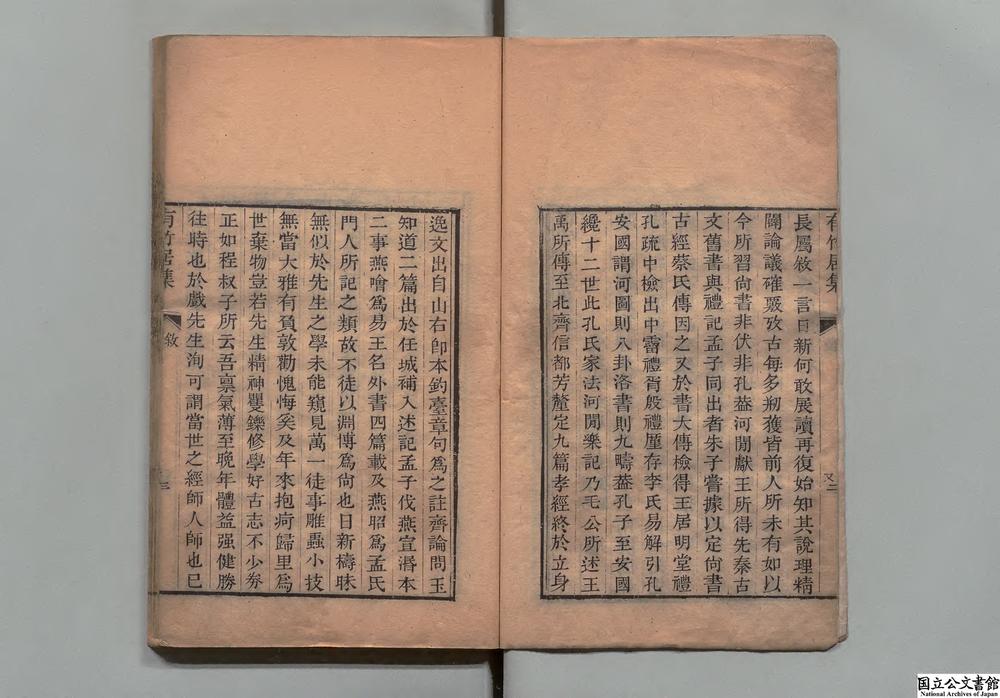 有竹居集
又二
長屬敘一言日新何敢展讀再復始知其說理精
闢論議確覈攷古每多剏獲皆前人所未有如以
今所習尙書非伏非孔葢河閒獻王所得先秦古
文舊書與禮記孟子同出者朱子嘗據以定尙書
古經蔡氏傳因之又於書大傳檢得王居明堂禮
孔疏中檢出中霤禮胥殷禮厪存李氏易解引孔
安國謂河圖則八卦洛書則九疇葢孔子至安國
纔十二世此孔氏家法河閒樂記乃毛公所述王
禹所傳至北齊信都芳釐定九篇孝經終於立身
逸文出自山右卽本釣臺章句爲之註齊論問玉
知道二篇出於任城補入述記孟子伐燕宣湣本
二事燕噲爲易王名外書四篇載及燕昭爲孟氏
門人所記之類故不徒以淵博爲尙也日新檮昧
無似於先生之學未能窺見萬一徒事雕蟲小技
無當大雅有負敦勸愧悔奚及年來抱疴歸里爲
世棄物豈若先生精神矍鑠修學好古志不少劵
正如程叔子所云吾禀氣薄至晚年體益强健勝
往時也於戲先生洵可謂當世之經師人師也已
有竹居集
敘
三
国立公文書館
National Archives of Japan